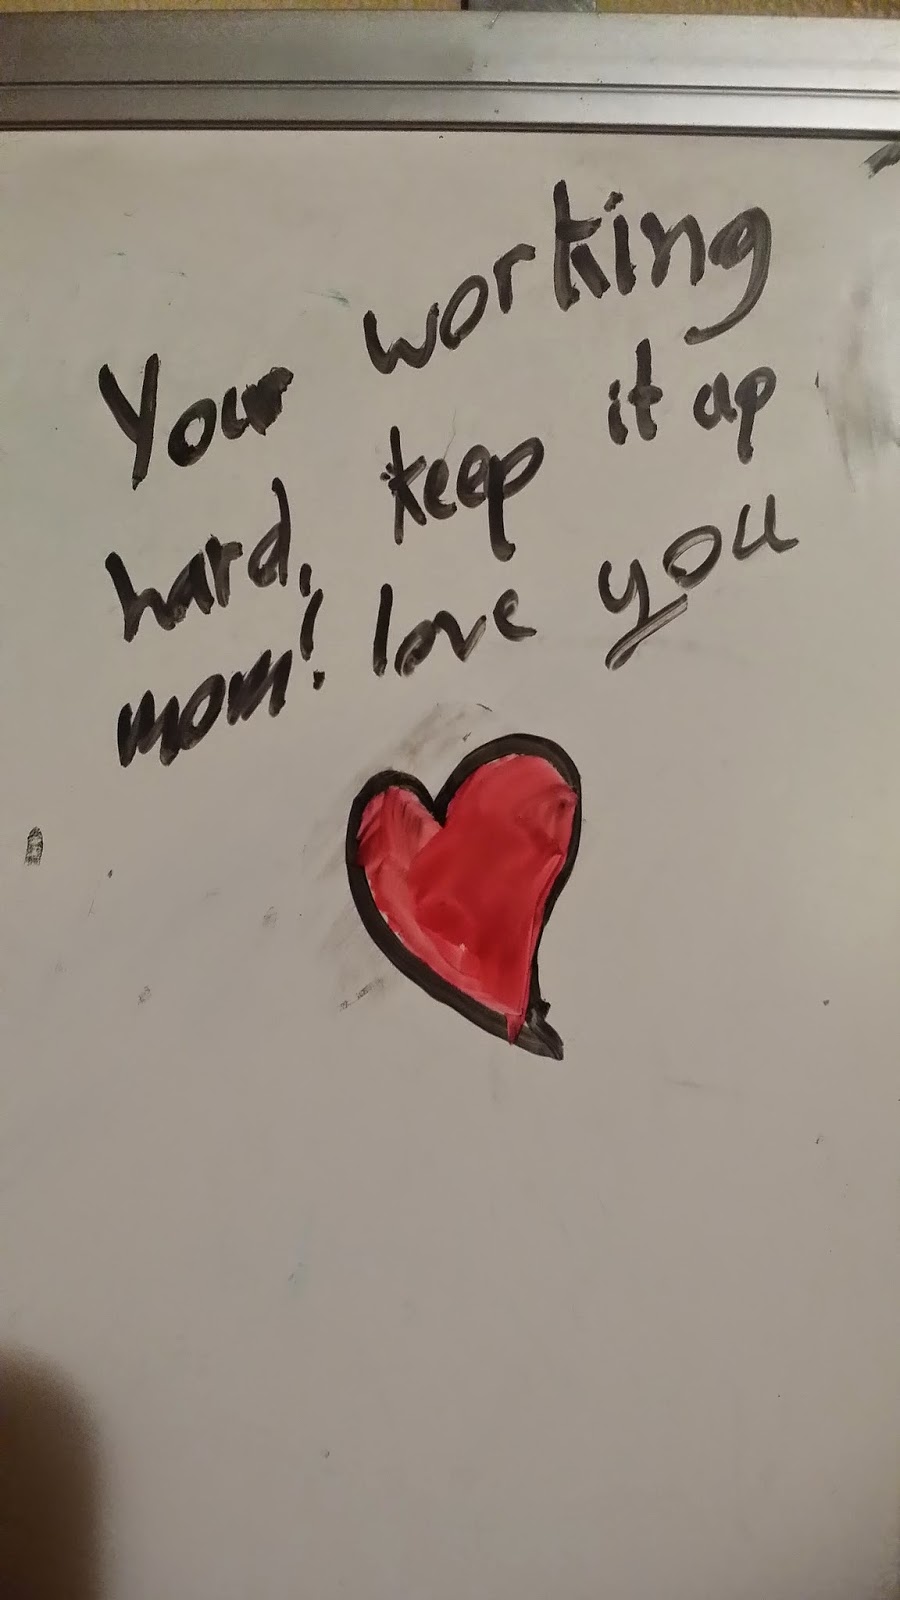 Your working
hard, keep it up
mom! love you